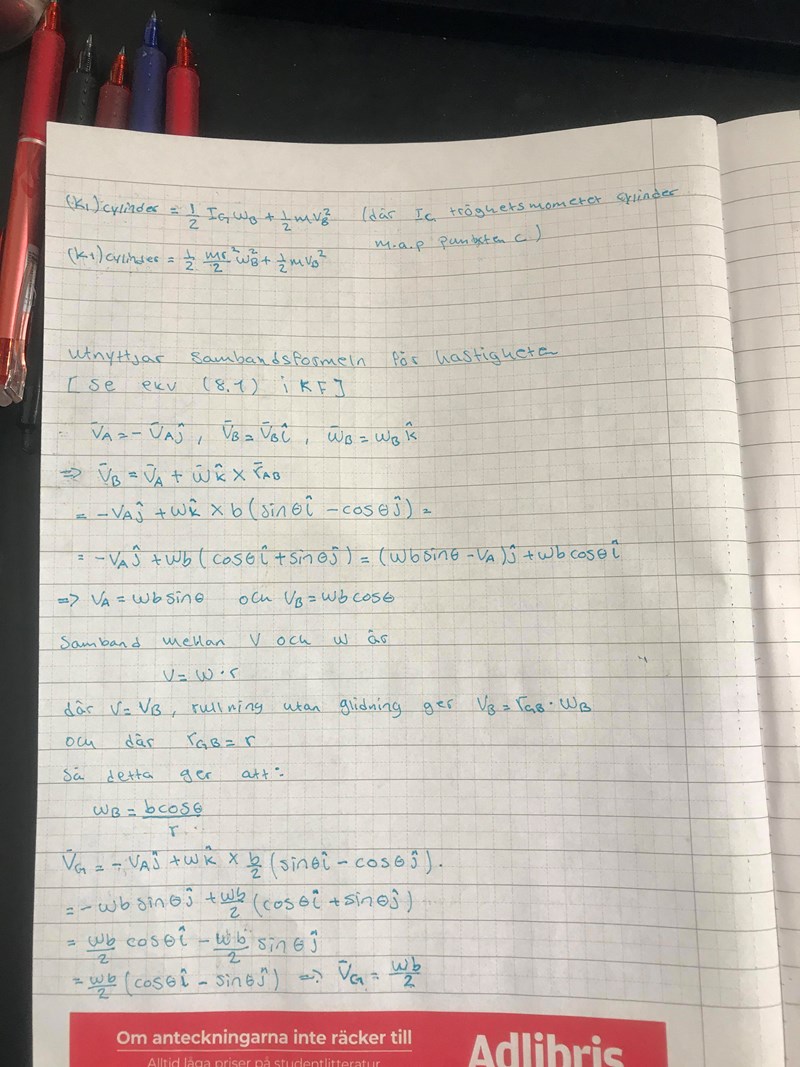 (K₁)cylinder = 1/2 I_G ω_B + 1/2 m v_B² (där I_G tröghetsmomentet cylinder
m.a.p punkten C)
(K₁)cylinder = 1/2 mr²/2 ω_B² + 1/2 m v_B²
Utnyttjar sambandsformeln för hastigheten
[Se ekv (8.1) i KF]
v̄_A = - v̄_A ĵ , v̄_B = v̄_B î , ω̄_B = ω_B k̂
=> v̄_B = v̄_A + ω̄ k̂ × r̄_AB
= -v_A ĵ + ω k̂ × b (sinθ î - cosθ ĵ) =
= -v_A ĵ + ωb (cosθ î + sinθ ĵ) = (ωb sinθ - v_A) ĵ + ωb cosθ î
=> v_A = ωb sinθ och v_B = ωb cosθ
Samband mellan v och ω är
v = ω · r
där v = v_B, rullning utan glidning ger v_B = r_GB · ω_B
och där r_GB = r
Så detta ger att:
ω_B = b cosθ / r
v̄_G = - v_A ĵ + ω k̂ × b/2 (sinθ î - cosθ ĵ).
= -ωb sinθ ĵ + ωb/2 (cosθ î + sinθ ĵ)
= ωb/2 cosθ î - ωb/2 sinθ ĵ
= ωb/2 (cosθ î - sinθ ĵ) => v̄_G = ωb/2
Om anteckningarna inte räcker till
Alltid låga priser på studentlitteratur
Adlibris